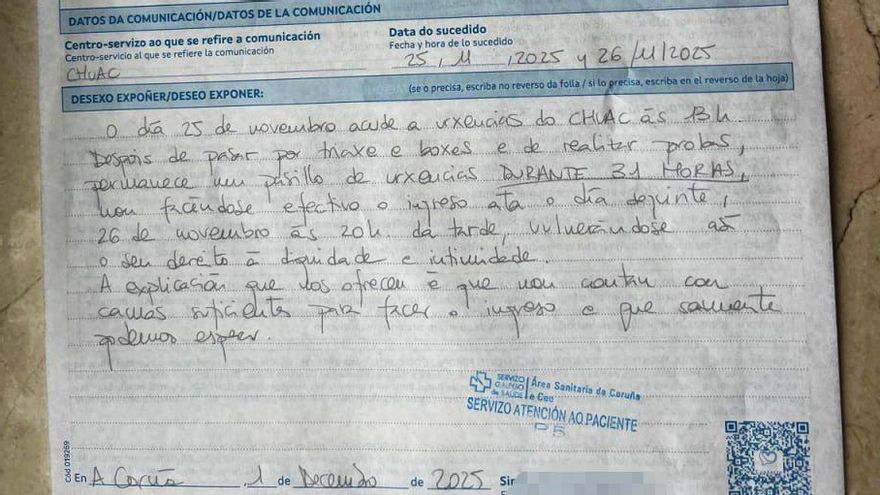 DATOS DA COMUNICACIÓN/DATOS DE LA COMUNICACIÓN
Centro-servizo ao que se refire a comunicación
Centro-servicio al que se refiere la comunicación
CHUAC
Data do sucedido
Fecha y hora de lo sucedido
25, 11, 2025 y 26/11/2025
DESEXO EXPOÑER/DESEO EXPONER:
(se o precisa, escriba no reverso da folla / si lo precisa, escriba en el reverso de la hoja)
O día 25 de novembro acude a urxencias do CHUAC ás 13h.
Despois de pasar por triaxe e boxes e de realitar probas,
permanece nun pasillo de urxencias DURANTE 31 HORAS,
non facéndose efectivo o ingreso ata o día seguinte,
26 de novembro ás 20h da tarde, vulnerándose así
o seu dereito á dignidade e intimidade.
A explicación que nos ofrecen é que non contan con
camas suficientes para facer o ingreso e que somente
podemos esperar.
SERVIZO GALEGO de SAÚDE
Área Sanitaria da Coruña
e Cee
SERVIZO ATENCIÓN AO PACIENTE
P5
Cód 019269
En A Coruña, 1 de Decembro de 2025 Sir